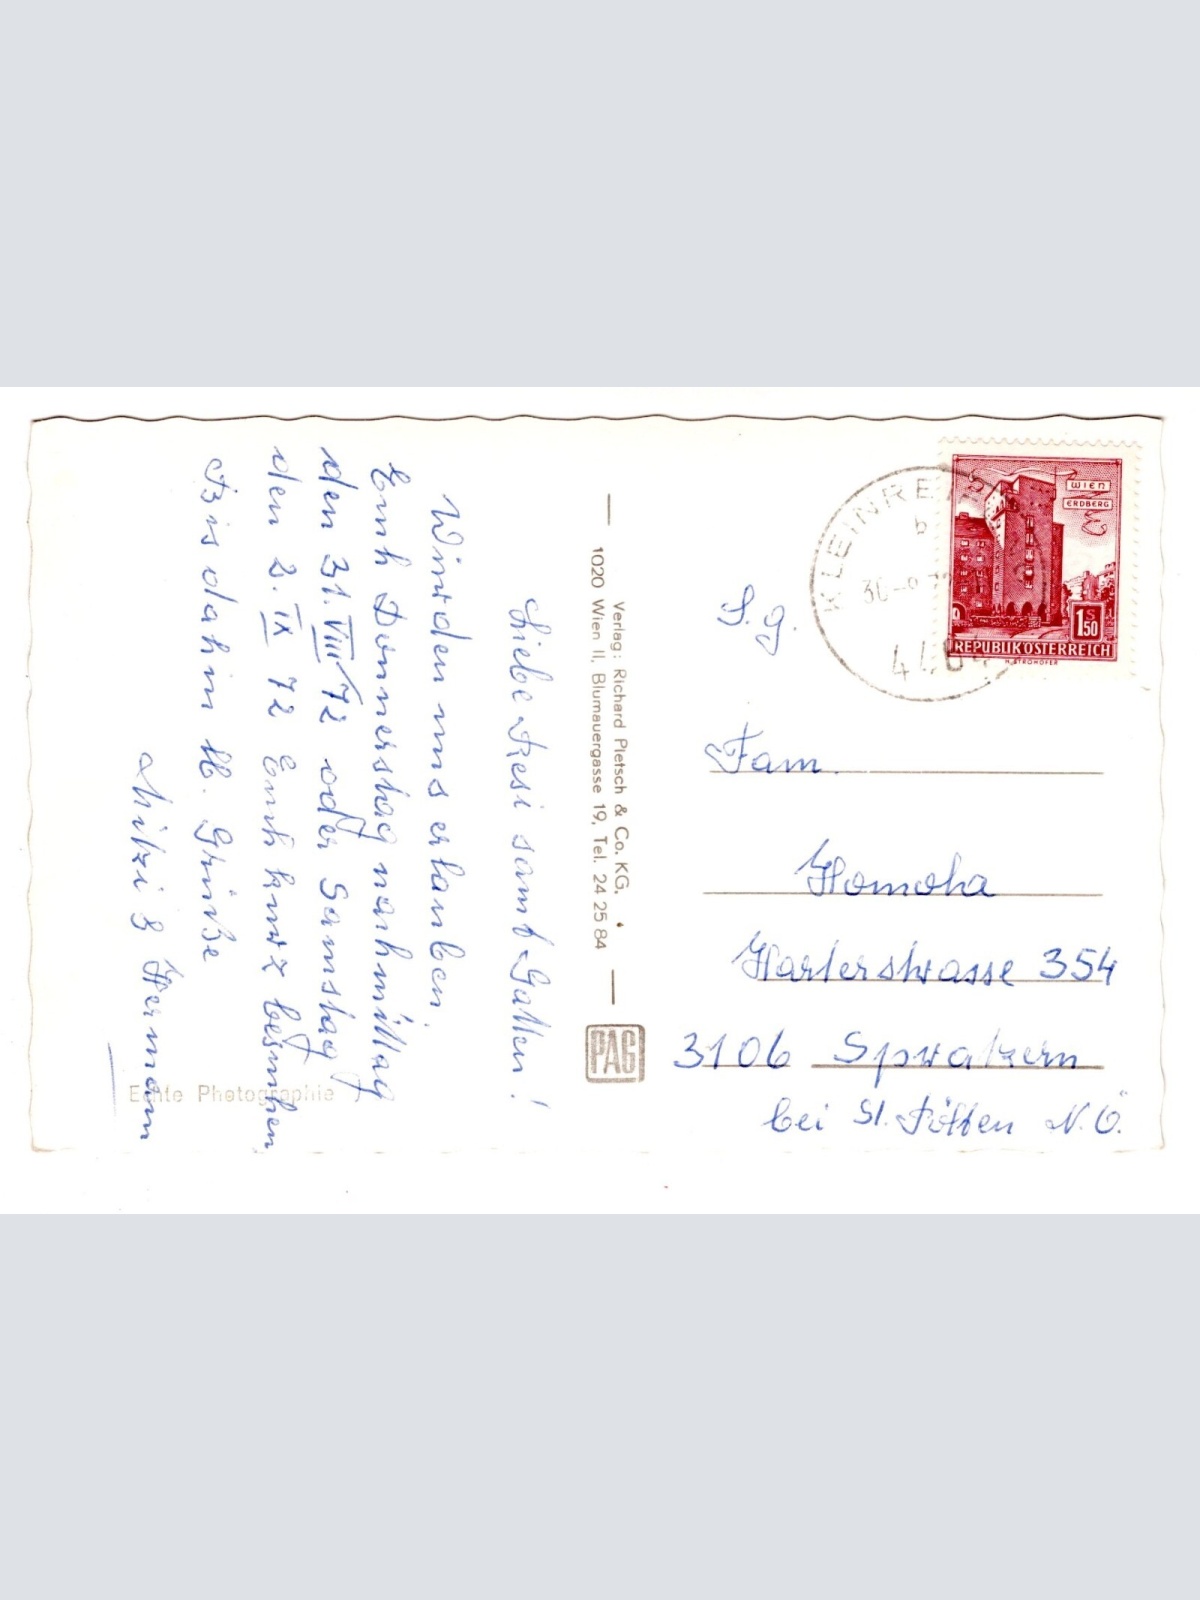 Liebe Resi samt Gatten!
Würden uns erlauben,
Euch Donnerstag nachmittag
den 31.VIII/72 oder Samstag
den 2. IX 72 Euch kurz besuchen,
Bis dahin lb. Grüße
Mitzi & Hermann
Echte Photographie
Verlag: Richard Pietsch & Co. KG.
1020 Wien II, Blumauergasse 19, Tel. 24 25 84
PAG
WIEN
ERDBERG
1 S 50
REPUBLIK ÖSTERREICH
H. STROHOFER
b
S. g.
Fam.
Homoha
Harterstrasse 354
3106 Spratzern
bei St. Pölten N. Ö.